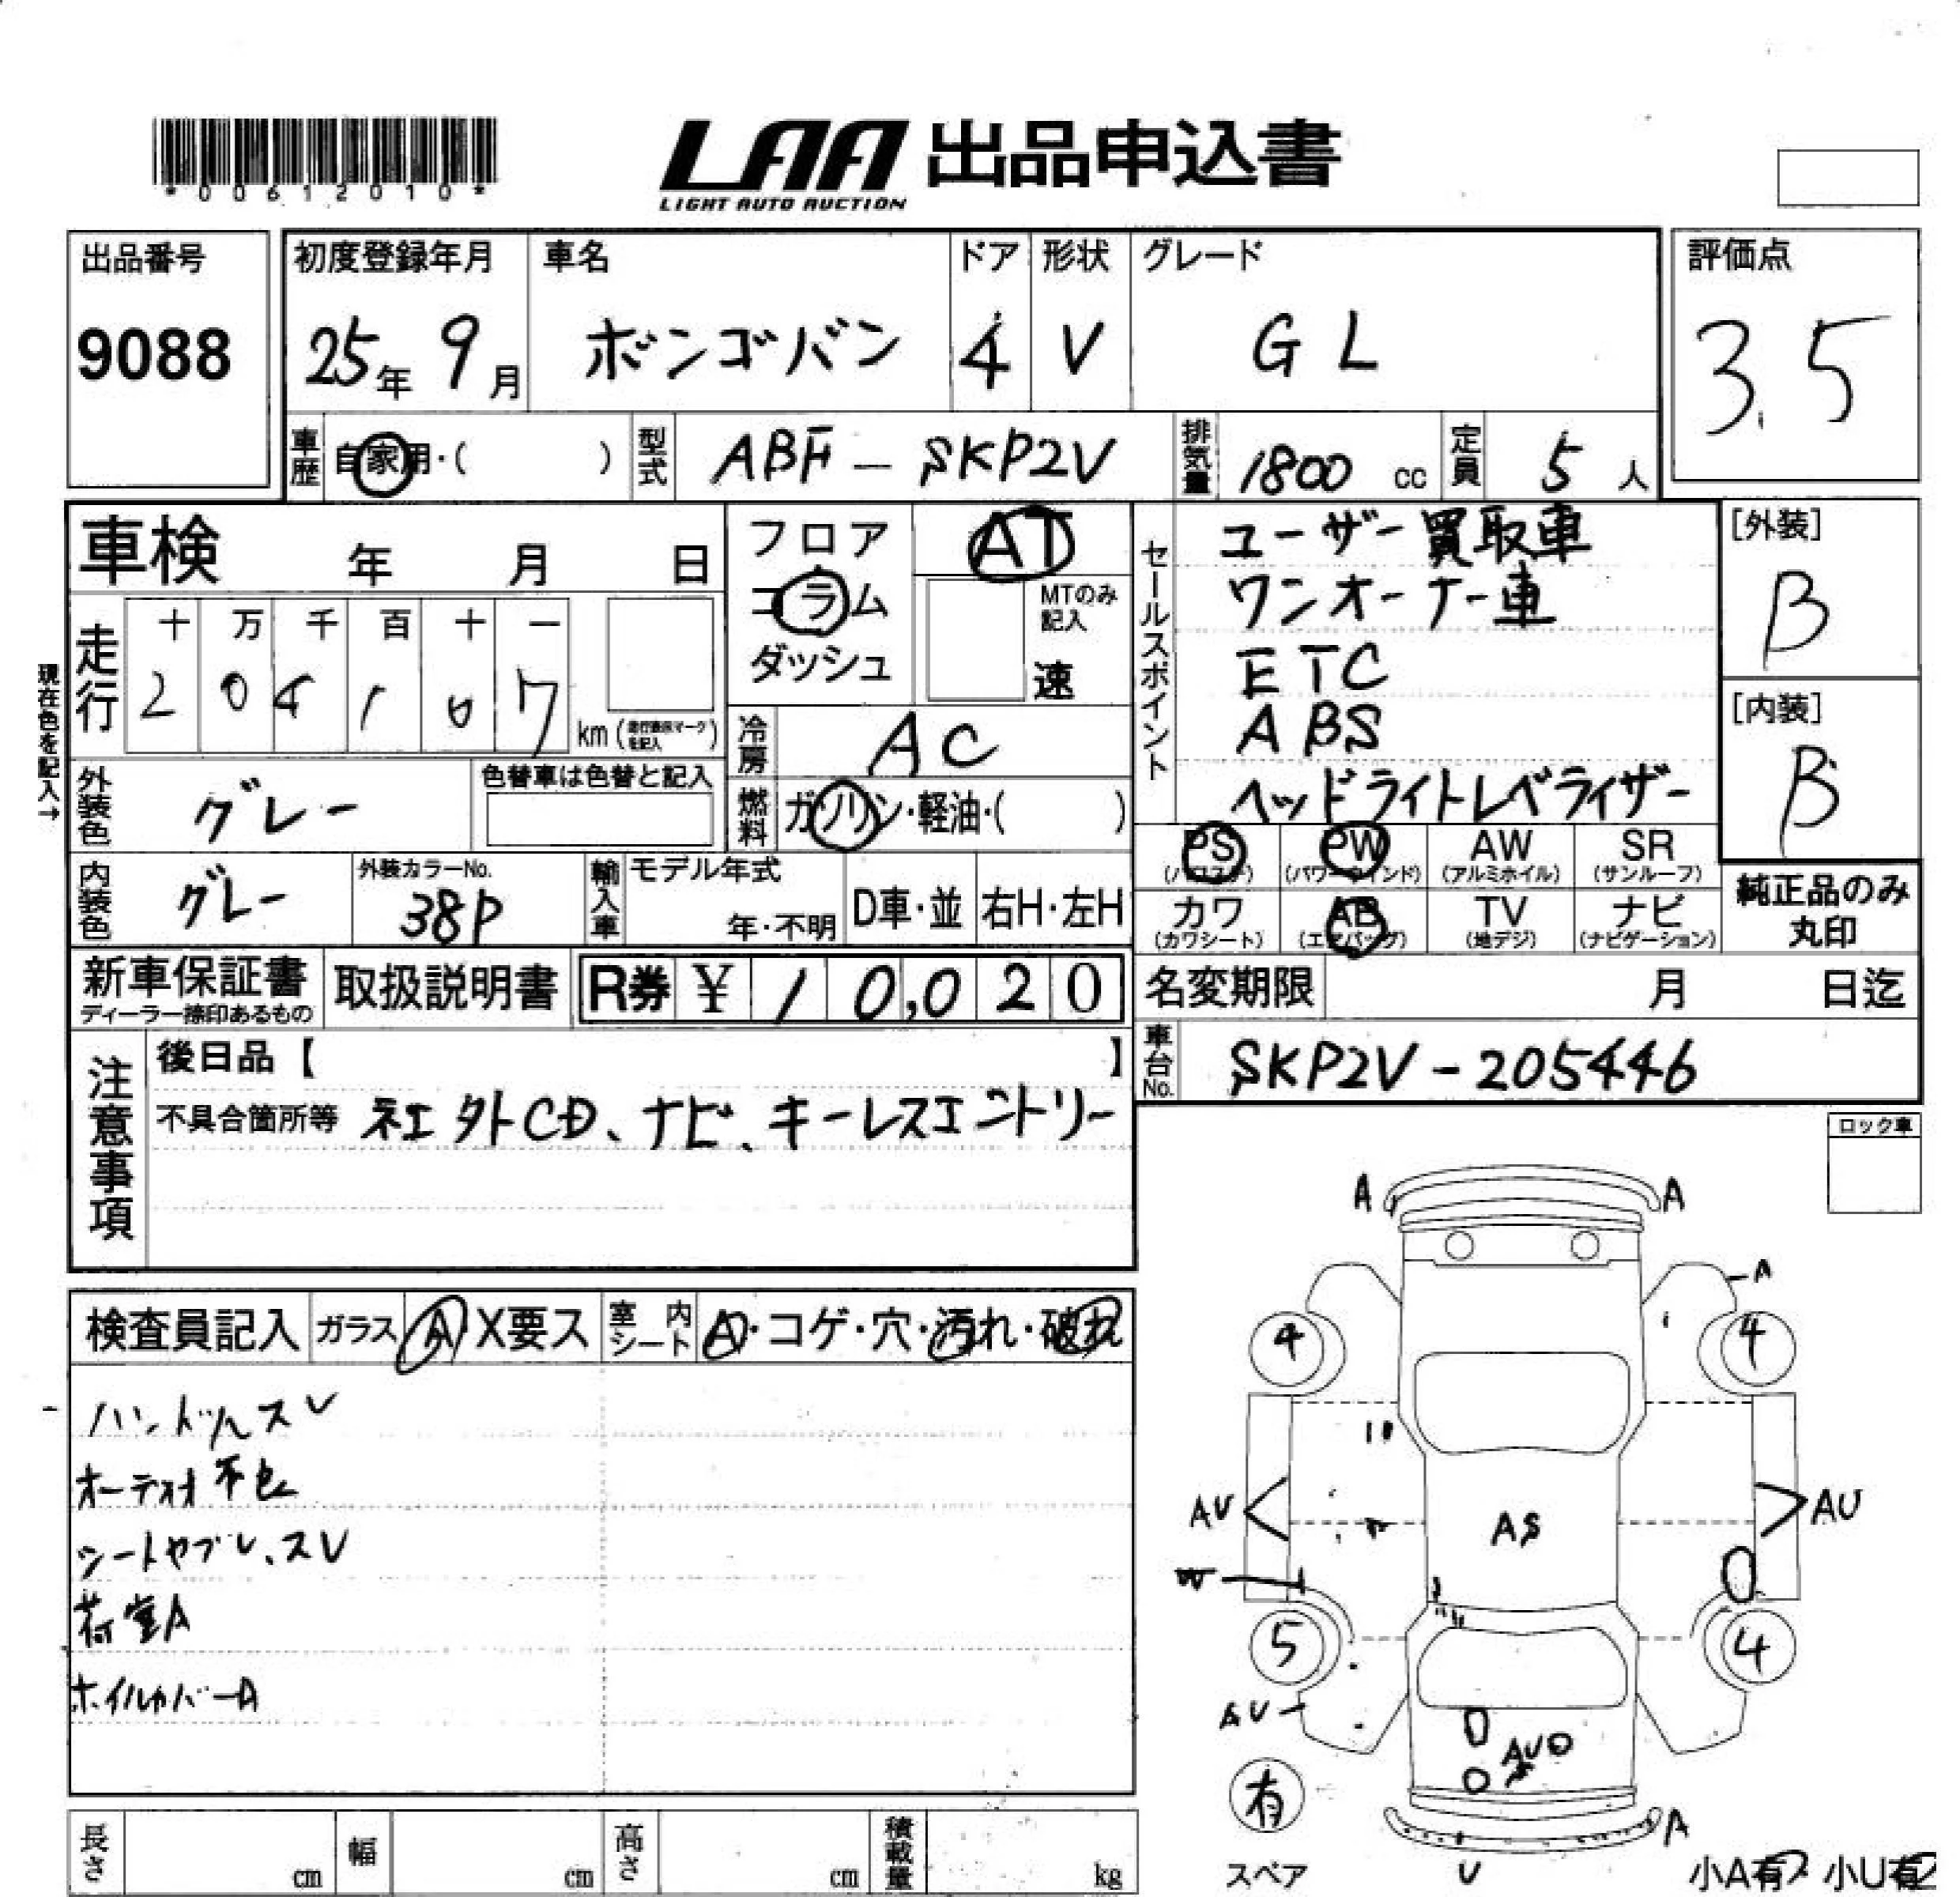 *00612010*
LAA 出品申込書
LIGHT AUTO AUCTION
出品番号
9088
初度登録年月
25年 9月
車名
ボンゴバン
ドア
4
形状
V
グレード
GL
評価点
3.5
車歴
自家用・( )
型式
ABF-SKP2V
排気量
1800 cc
定員
5 人
車検 年 月 日
フロア
コラム
ダッシュ
AT
MTのみ
記入
速
セールスポイント
ユーザー買取車
ワンオーナー車
ETC
ABS
ヘッドライトレベライザー
[外装]
B
[内装]
B
現在色を記入→
走行
十 万 千 百 十 一
2 0 4 1 0 7
km
冷房
AC
外装色
グレー
色替車は色替と記入
燃料
ガソリン・軽油・( )
内装色
グレー
外装カラーNo.
38P
輸入車
モデル年式
年・不明
D車・並
右H・左H
PS
(パワステ)
PW
(パワーウインド)
AW
(アルミホイル)
SR
(サンルーフ)
カワ
(カワシート)
AB
(エアバッグ)
TV
(地デジ)
ナビ
(ナビゲーション)
純正品のみ
丸印
新車保証書
ディーラー捺印あるもの
取扱説明書
R券 ¥ 10,020
名変期限 月 日迄
車台No.
SKP2V-205446
注意事項
後日品【 】
不具合箇所等 社外CD、ナビ、キーレスエントリー
ロック車
検査員記入
ガラス A X要ス
室内
シート
A・コゲ・穴・汚れ・破れ
ハンドルスレ
オーディオ不良
シートヤブレ、スレ
荷室A
ホイルカバーA
A A
A
4 4
AU AS AU
W
5 4
AU
AU
有
スペア
A
U
小A有 小U有
長さ cm
幅 cm
高さ cm
積載量 kg